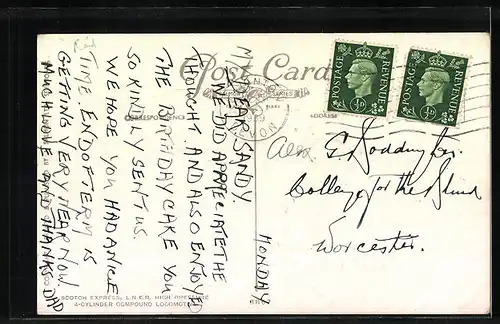 Post Card
CORRESPONDENCE
ADDRESS
POSTAGE REVENUE
½D
POSTAGE REVENUE
½D
MONDAY
MY DEAR SANDY.
WE DID APPRECIATE THE
THOUGHT AND ALSO ENJOYED
THE BIRTHDAY CAKE YOU
SO KINDLY SENT US.
WE HOPE YOU HAD A NICE
TIME. END OF TERM IS
GETTING VERY NEAR NOW.
MUCH LOVE AND THANKS DAD
College for the Blind
Worcester.
"SCOTCH EXPRESS, L.N.E.R. HIGH PRESSURE
4-CYLINDER COMPOUND LOCOMOTIVE